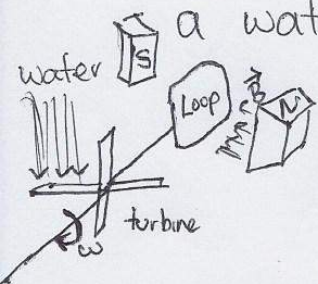 a wat
S
water
Loop
B
N
turbine
ω